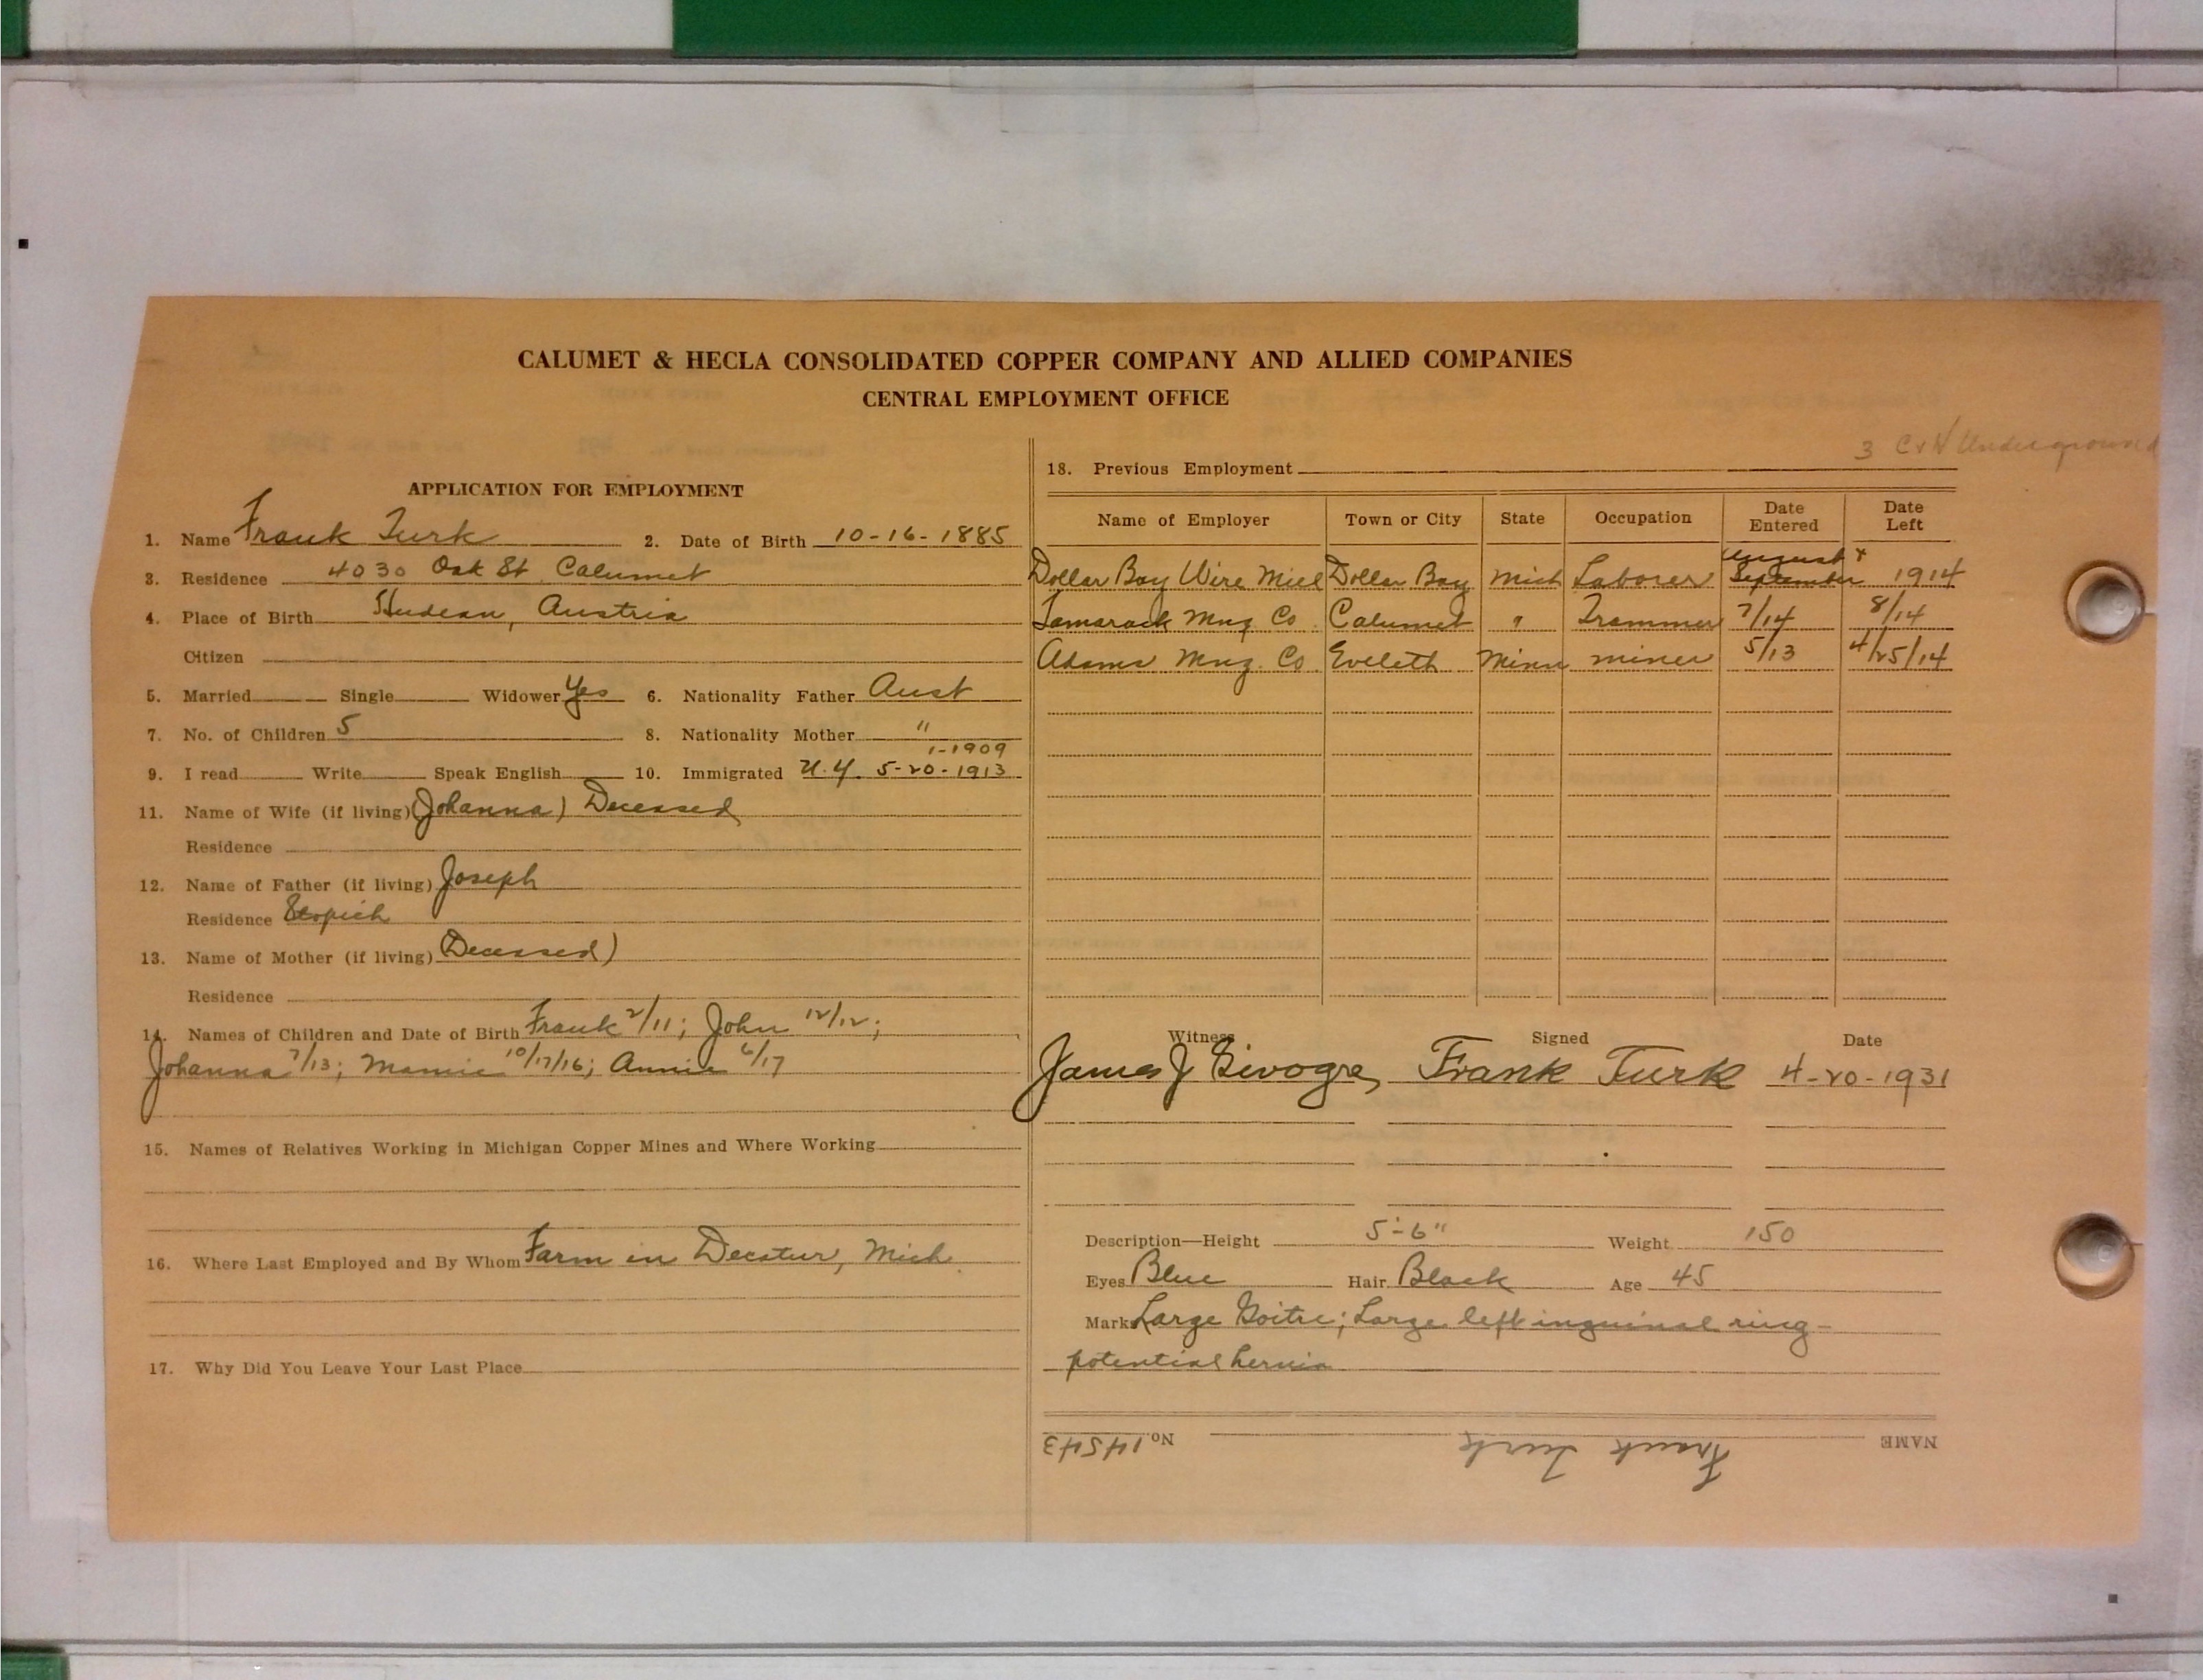 CALUMET & HECLA CONSOLIDATED COPPER COMPANY AND ALLIED COMPANIES
CENTRAL EMPLOYMENT OFFICE
3 C & H Underground
APPLICATION FOR EMPLOYMENT
1. Name Frank Turk 2. Date of Birth 10-16-1885
3. Residence 4030 Oak St Calumet
4. Place of Birth Austria
Citizen
5. Married Single Widower Yes 6. Nationality Father Aust
7. No. of Children 5 8. Nationality Mother "
1-1909
9. I read Write Speak English 10. Immigrated N.Y. 5-20-1913
11. Name of Wife (if living) (Johanna) Deceased
Residence
12. Name of Father (if living) Joseph
Residence
13. Name of Mother (if living) Deceased)
Residence
14. Names of Children and Date of Birth Frank 2/11; John 12/12;
Johanna 7/13; Mamie 10/17/16; Annie 6/17
15. Names of Relatives Working in Michigan Copper Mines and Where Working
16. Where Last Employed and By Whom Farm in Decatur, Mich.
17. Why Did You Leave Your Last Place
18. Previous Employment
Name of Employer Town or City State Occupation Date Entered Date Left
Dollar Bay Wire Mill Dollar Bay Mich Laborer August & September 1914
Tamarack Mng Co Calumet " Trammer 7/14 8/14
Adams Mng. Co Eveleth Minn miner 5/13 4/25/14
Witness Signed Date
James J Frank Turk 4-20-1931
Description—Height 5'-6" Weight 150
Eyes Blue Hair Black Age 45
Marks Large Goitre; Large left inguinal ring-
potential hernia
NAME Frank Turk No. 14543